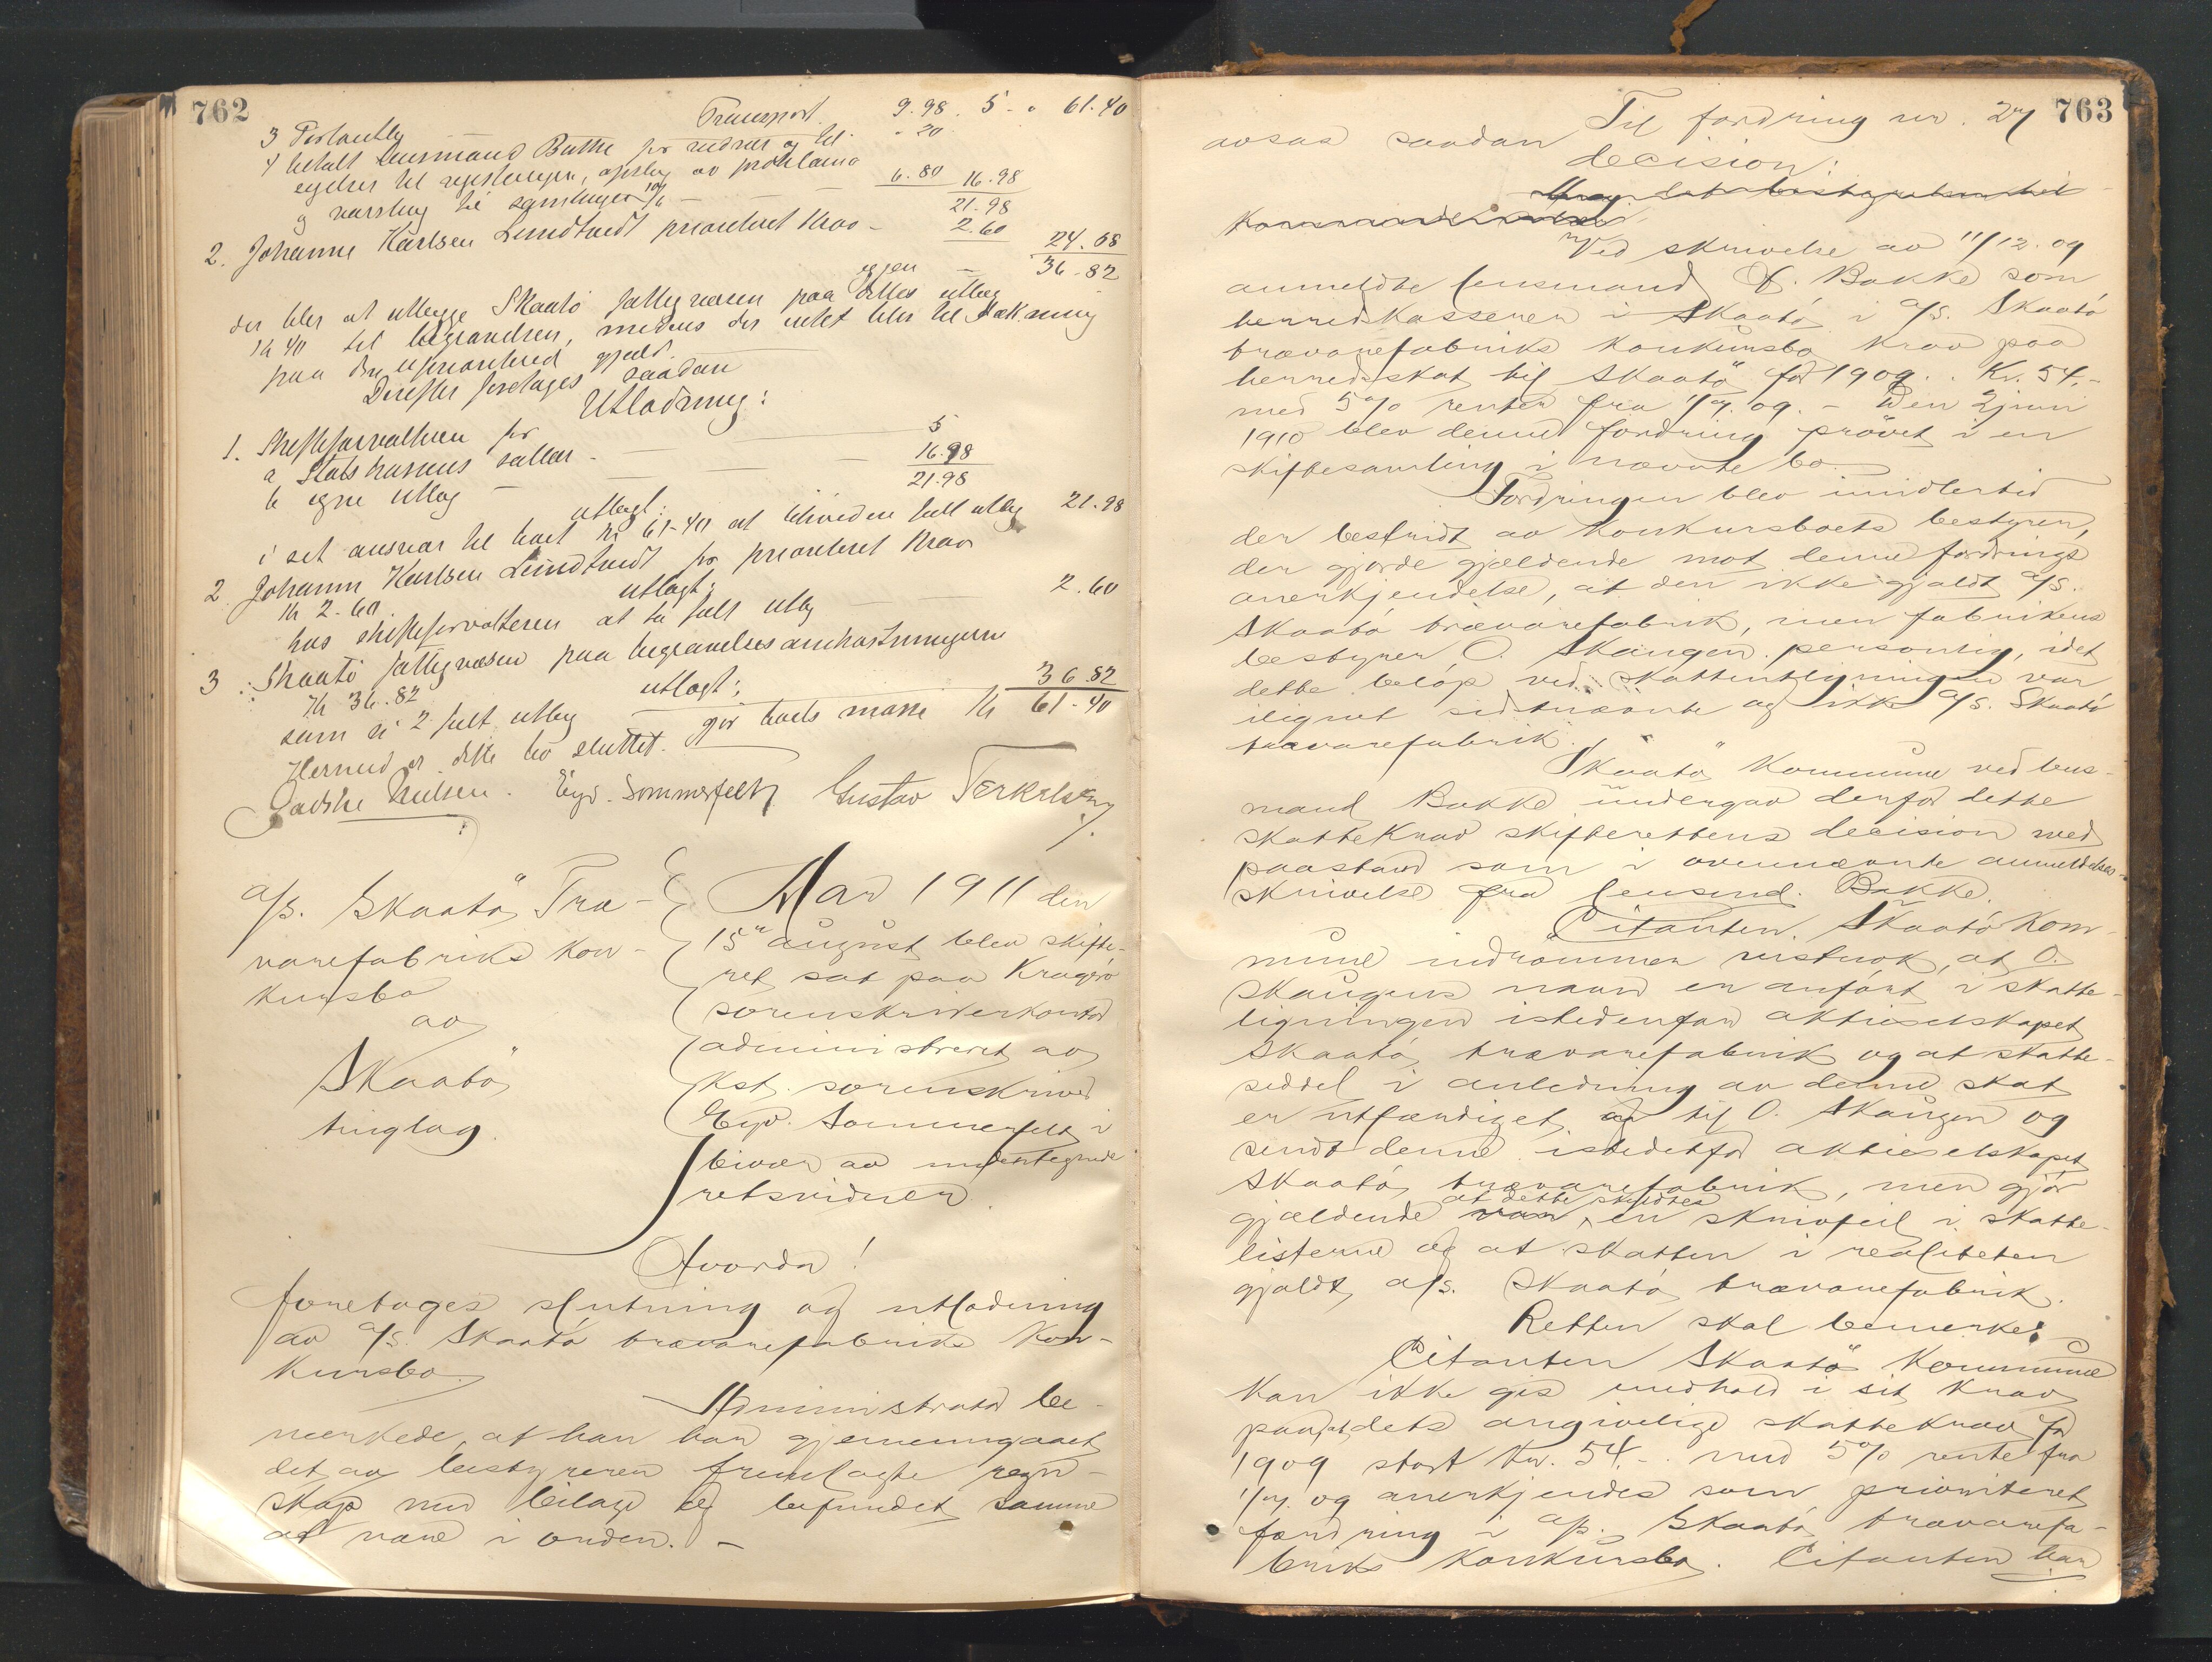 762
Transport. 9.98. 5 - " 61.40
3 Portoutlæg - 20
4 betalt lensmand Bakke for
til registeringen, opslag av proklama
og varsling til samlingen - 6.80 16.98
21.98
2. Johanne Karlsen Lundtvedt prioriteret krav - 2.60 24.58
igjen - 36.82
der blir at utlegge Skaatö fattigvæsen paa dettes utlæg
til begravelsen, medens der intet blir til dækning
paa den uprioriterede gjæld.
Derefter foretages saadan
Utlodning:
1. Skifteforvalteren for
a Statskassens sallær - 5
b egne utlæg - 16.98
21.98
utlagt:
i set ansvar til boet kr 61-40 at tilsvedere fuldt utlæg 21.98
2. Johanne Karlsen Lundtvedt for prioriteret krav
kr 2.60.
utlagt:
hos skifteforvalteren at ta fuldt utlæg 2.60
3. Skaatö fattigvæsen paa begravelsesomkostningerne
Kr 36.82
utlagt:
som i 2 fuldt utlæg 36.82
gjör boets masse Kr 61-40
Hermed er dette bo sluttet.
Eyv. Sommerfelt Gustav Terkelsen
a/s. Skaatö Træ-
varefabriks kon-
kursbo
av
Skaatö
tinglag.
Aar 1911 den
15 august blev skifte-
ret sat paa Kragerö
sorenskriverkontor
administreret av
kst. sorenskriver
Eyv. Sommerfelt i
bivær av undertegnede
retsvidner
Hvorda!
foretoges slutning og utlodning
av a/s. Skaatö trævarefabriks kon-
kursbo.
Administrator be-
merkede, at han har gjennemgaaet
det av bestyreren fremlagte regn-
skap med bilage og befundet samme
at være i orden. -
763
Til fordring nr. 27
avsas saadan
decision:
Ved skrivelse av 11/12.09
anmeldte lensmand D. Bakke som
herredskasserer i Skaatö i a/s. Skaatö
trævarefabriks konkursbo krav paa
herredsskat til Skaatö for 1909.. Kr. 54.-
med 5% renter fra 1/7.09. - Den 2 juni
1910 blev denne fordring prövet i en
skiftesamling i nævnte bo.
Fordringen blev imidlertid
der bestridt av konkursboets bestyrer,
der gjorde gjældende mot denne fordrings
anerkjendelse, at den ikke gjaldt a/s.
Skaatö trævarefabrik, men fabrikens
bestyrer O. Skaugen personlig, idet
dette beløp ved skatteutligningen var
ilignet sidstnævnte og ikke a/s. Skaatö
trævarefabrik.
Skaatö kommune ved lens-
mand Bakke undergav derfor dette
skattekrav skifterettens decision med
paastand som i ovennævnte anmeldelses-
skrivelse fra lensmd. Bakke.
Citanten, Skaatö kom-
mune indrömmer vistnok, at O.
Skaugens navn er anfört i skatte-
ligningen istedenfor aktieselskapet
Skaatö trævarefabrik og at skatte-
seddel i anledning av denne skat
er utfærdiget til O. Skaugen og
sendt denne istedetfor aktieselskapet
Skaatö trævarefabrik, men gjör
gjældende at dette skyldtes en skrivfeil i skatte-
listerne og at skatten i realiteten
gjaldt a/s. Skaatö trævarefabrik.
Retten skal bemerke:
Citanten Skaatö kommune
kan ikke gis medhold i sit krav
paa at dets angivelige skattekrav for
1909 stort kr. 54.-. med 5% rente fra
1/7.09 anerkjendes som prioriteret
fordring i a/s. Skaatö trævarefa-
briks konkursbo. Citanten har